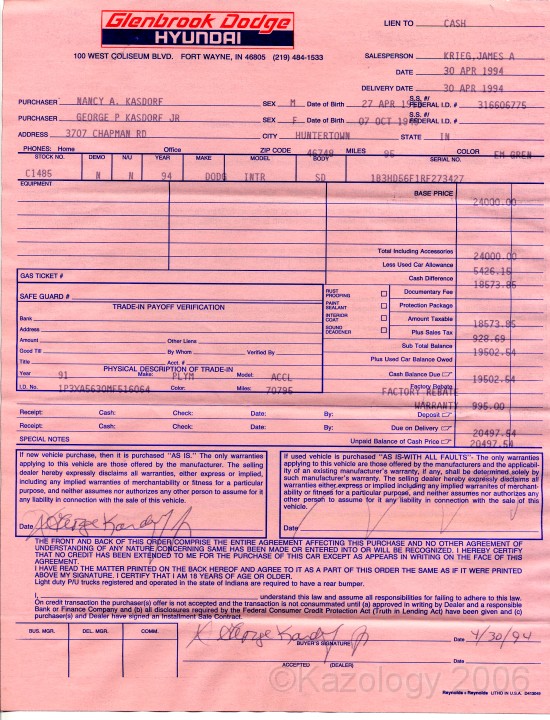 Glenbrook Dodge
HYUNDAI
100 WEST COLISEUM BLVD. FORT WAYNE, IN 46805 (219) 484-1533
LIEN TO CASH
SALESPERSON KRIEG,JAMES A
DATE 30 APR 1994
DELIVERY DATE 30 APR 1994
PURCHASER NANCY A. KASDORF SEX M Date of Birth 27 APR S.S. #/ FEDERAL I.D. # 316606775
PURCHASER GEORGE P KASDORF JR SEX F Date of Birth 07 OCT S.S. #/ FEDERAL I.D. #
ADDRESS 3707 CHAPMAN RD CITY HUNTERTOWN STATE IN
PHONES: Home Office ZIP CODE 46748 MILES 95 COLOR EM GREN
STOCK NO. DEMO N/U YEAR MAKE MODEL BODY SERIAL NO.
C1485 N N 94 DODG INTR SD 1B3HD56F1RF273427
EQUIPMENT BASE PRICE 24000.00
Total Including Accessories 24000.00
Less Used Car Allowance 5426.15
Cash Difference 18573.85
GAS TICKET # RUST PROOFING Documentary Fee
SAFE GUARD # PAINT SEALANT Protection Package
TRADE-IN PAYOFF VERIFICATION INTERIOR COAT Amount Taxable 18573.85
Bank SOUND DEADENER Plus Sales Tax 928.69
Address Sub Total Balance 19502.54
Amount Other Liens
Good Till By Whom Verified By Plus Used Car Balance Owed
Title Acct. #
PHYSICAL DESCRIPTION OF TRADE-IN Cash Balance Due 19502.54
Year 91 Make: PLYM Model: ACCL Factory Rebate
I.D. No. 1P3XA5630MF516064 Color: Miles: 70795 FACTORY REBATE
WARRANTY 995.00
Receipt: Cash: Check: Date: By: Deposit
Receipt: Cash: Check: Date: By: Due on Delivery 20497.54
SPECIAL NOTES Unpaid Balance of Cash Price 20497.54
If new vehicle purchase, then it is purchased "AS IS." The only warranties
applying to this vehicle are those offered by the manufacturer. The selling
dealer hereby expressly disclaims all warranties, either express or implied,
including any implied warranties of merchantability or fitness for a particular
purpose, and neither assumes nor authorizes any other person to assume for it
any liability in connection with the sale of this vehicle.
Date George Kasdorf Jr
If used vehicle is purchased "AS IS-WITH ALL FAULTS"- The only warranties
applying to this vehicle are those offered by the manufacturer and the applicabil-
ity of an existing manufacturer's warranty, if any, shall be determined solely by
such manufacturer's warranty. The selling dealer hereby expressly disclaims all
warranties either express or implied including any implied warranties of merchant-
ability or fitness for a particular purpose, and neither assumes nor authorizes any
other person to assume for it any liability in connection with the sale of this
vehicle.
Date
THE FRONT AND BACK OF THIS ORDER COMPRISE THE ENTIRE AGREEMENT AFFECTING THIS PURCHASE AND NO OTHER AGREEMENT OF
UNDERSTANDING OF ANY NATURE CONCERNING SAME HAS BEEN MADE OR ENTERED INTO OR WILL BE RECOGNIZED. I HEREBY CERTIFY
THAT NO CREDIT HAS BEEN EXTENDED TO ME FOR THE PURCHASE OF THIS CAR EXCEPT AS APPEARS IN WRITING ON THE FACE OF THIS
AGREEMENT.
I HAVE READ THE MATTER PRINTED ON THE BACK HEREOF AND AGREE TO IT AS A PART OF THIS ORDER THE SAME AS IF IT WERE PRINTED
ABOVE MY SIGNATURE. I CERTIFY THAT I AM 18 YEARS OF AGE OR OLDER.
Light duty P/U trucks registered and operated in the state of Indiana are required to have a rear bumper.
I, understand this law and assume all responsibilities for failing to adhere to this law.
On credit transaction the purchaser(s) offer is not accepted and the transaction is not consummated until (a) approved in writing by Dealer and a responsible
Bank or Finance Company and (b) all disclosures required by the Federal Consumer Credit Protection Act (Truth in Lending Act) have been given and (c)
purchaser(s) and Dealer have signed an Installment Sale Contract.
BUS. MGR. DEL. MGR. COMM.
X George Kasdorf Jr Date 4/30/94
BUYER'S SIGNATURE
Date
ACCEPTED (DEALER)
©Kazology 2006
Reynolds + Reynolds LITHO IN U.S.A.